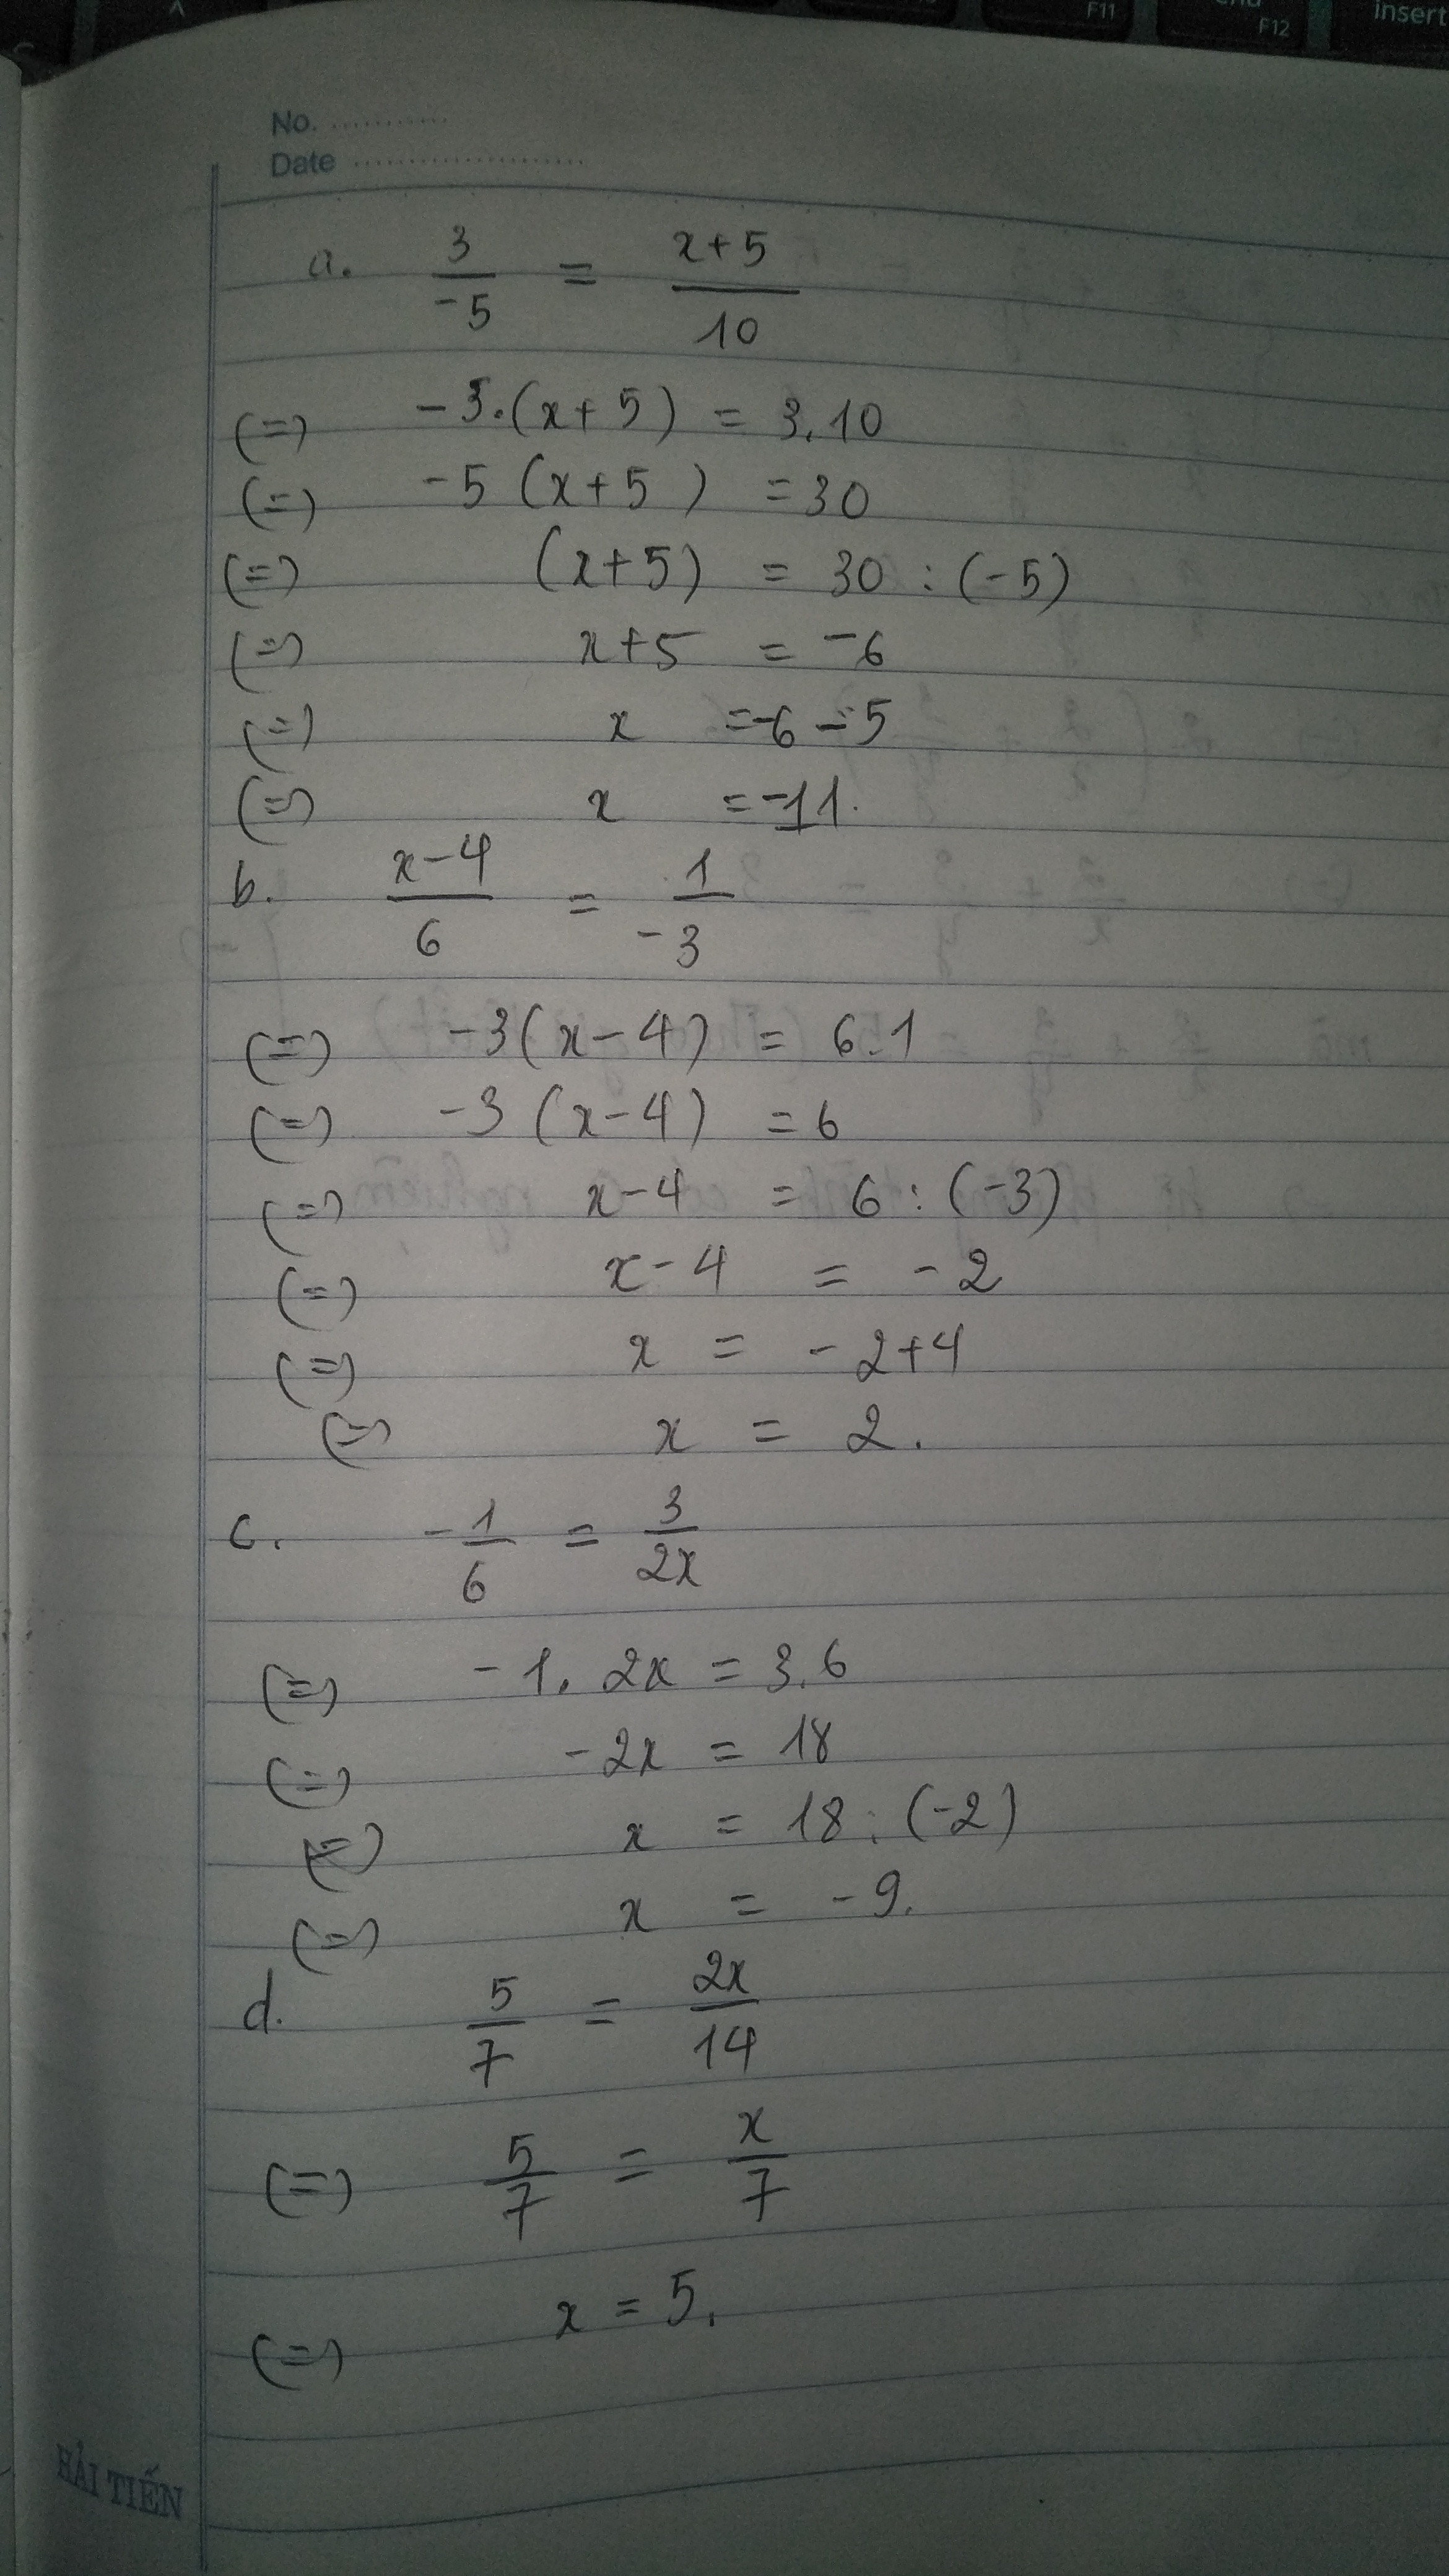 F11
end
F12
insert
No. ...........
Date ......................
a. 3/-5 = x+5/10
(=) -5.(x+5) = 3.10
(=) -5 (x+5) = 30
(=) (x+5) = 30 : (-5)
(=) x+5 = -6
(=) x = -6 - 5
(=) x = -11.
b. x-4/6 = 1/-3
(=) -3(x-4) = 6.1
(=) -3 (x-4) = 6
(=) x-4 = 6 : (-3)
(=) x-4 = -2
(=) x = -2+4
(=) x = 2.
c. -1/6 = 3/2x
(=) -1. 2x = 3.6
(=) -2x = 18
(=) x = 18 : (-2)
(=) x = -9.
d. 5/7 = 2x/14
(=) 5/7 = x/7
(=) x = 5.
HẢI TIẾN